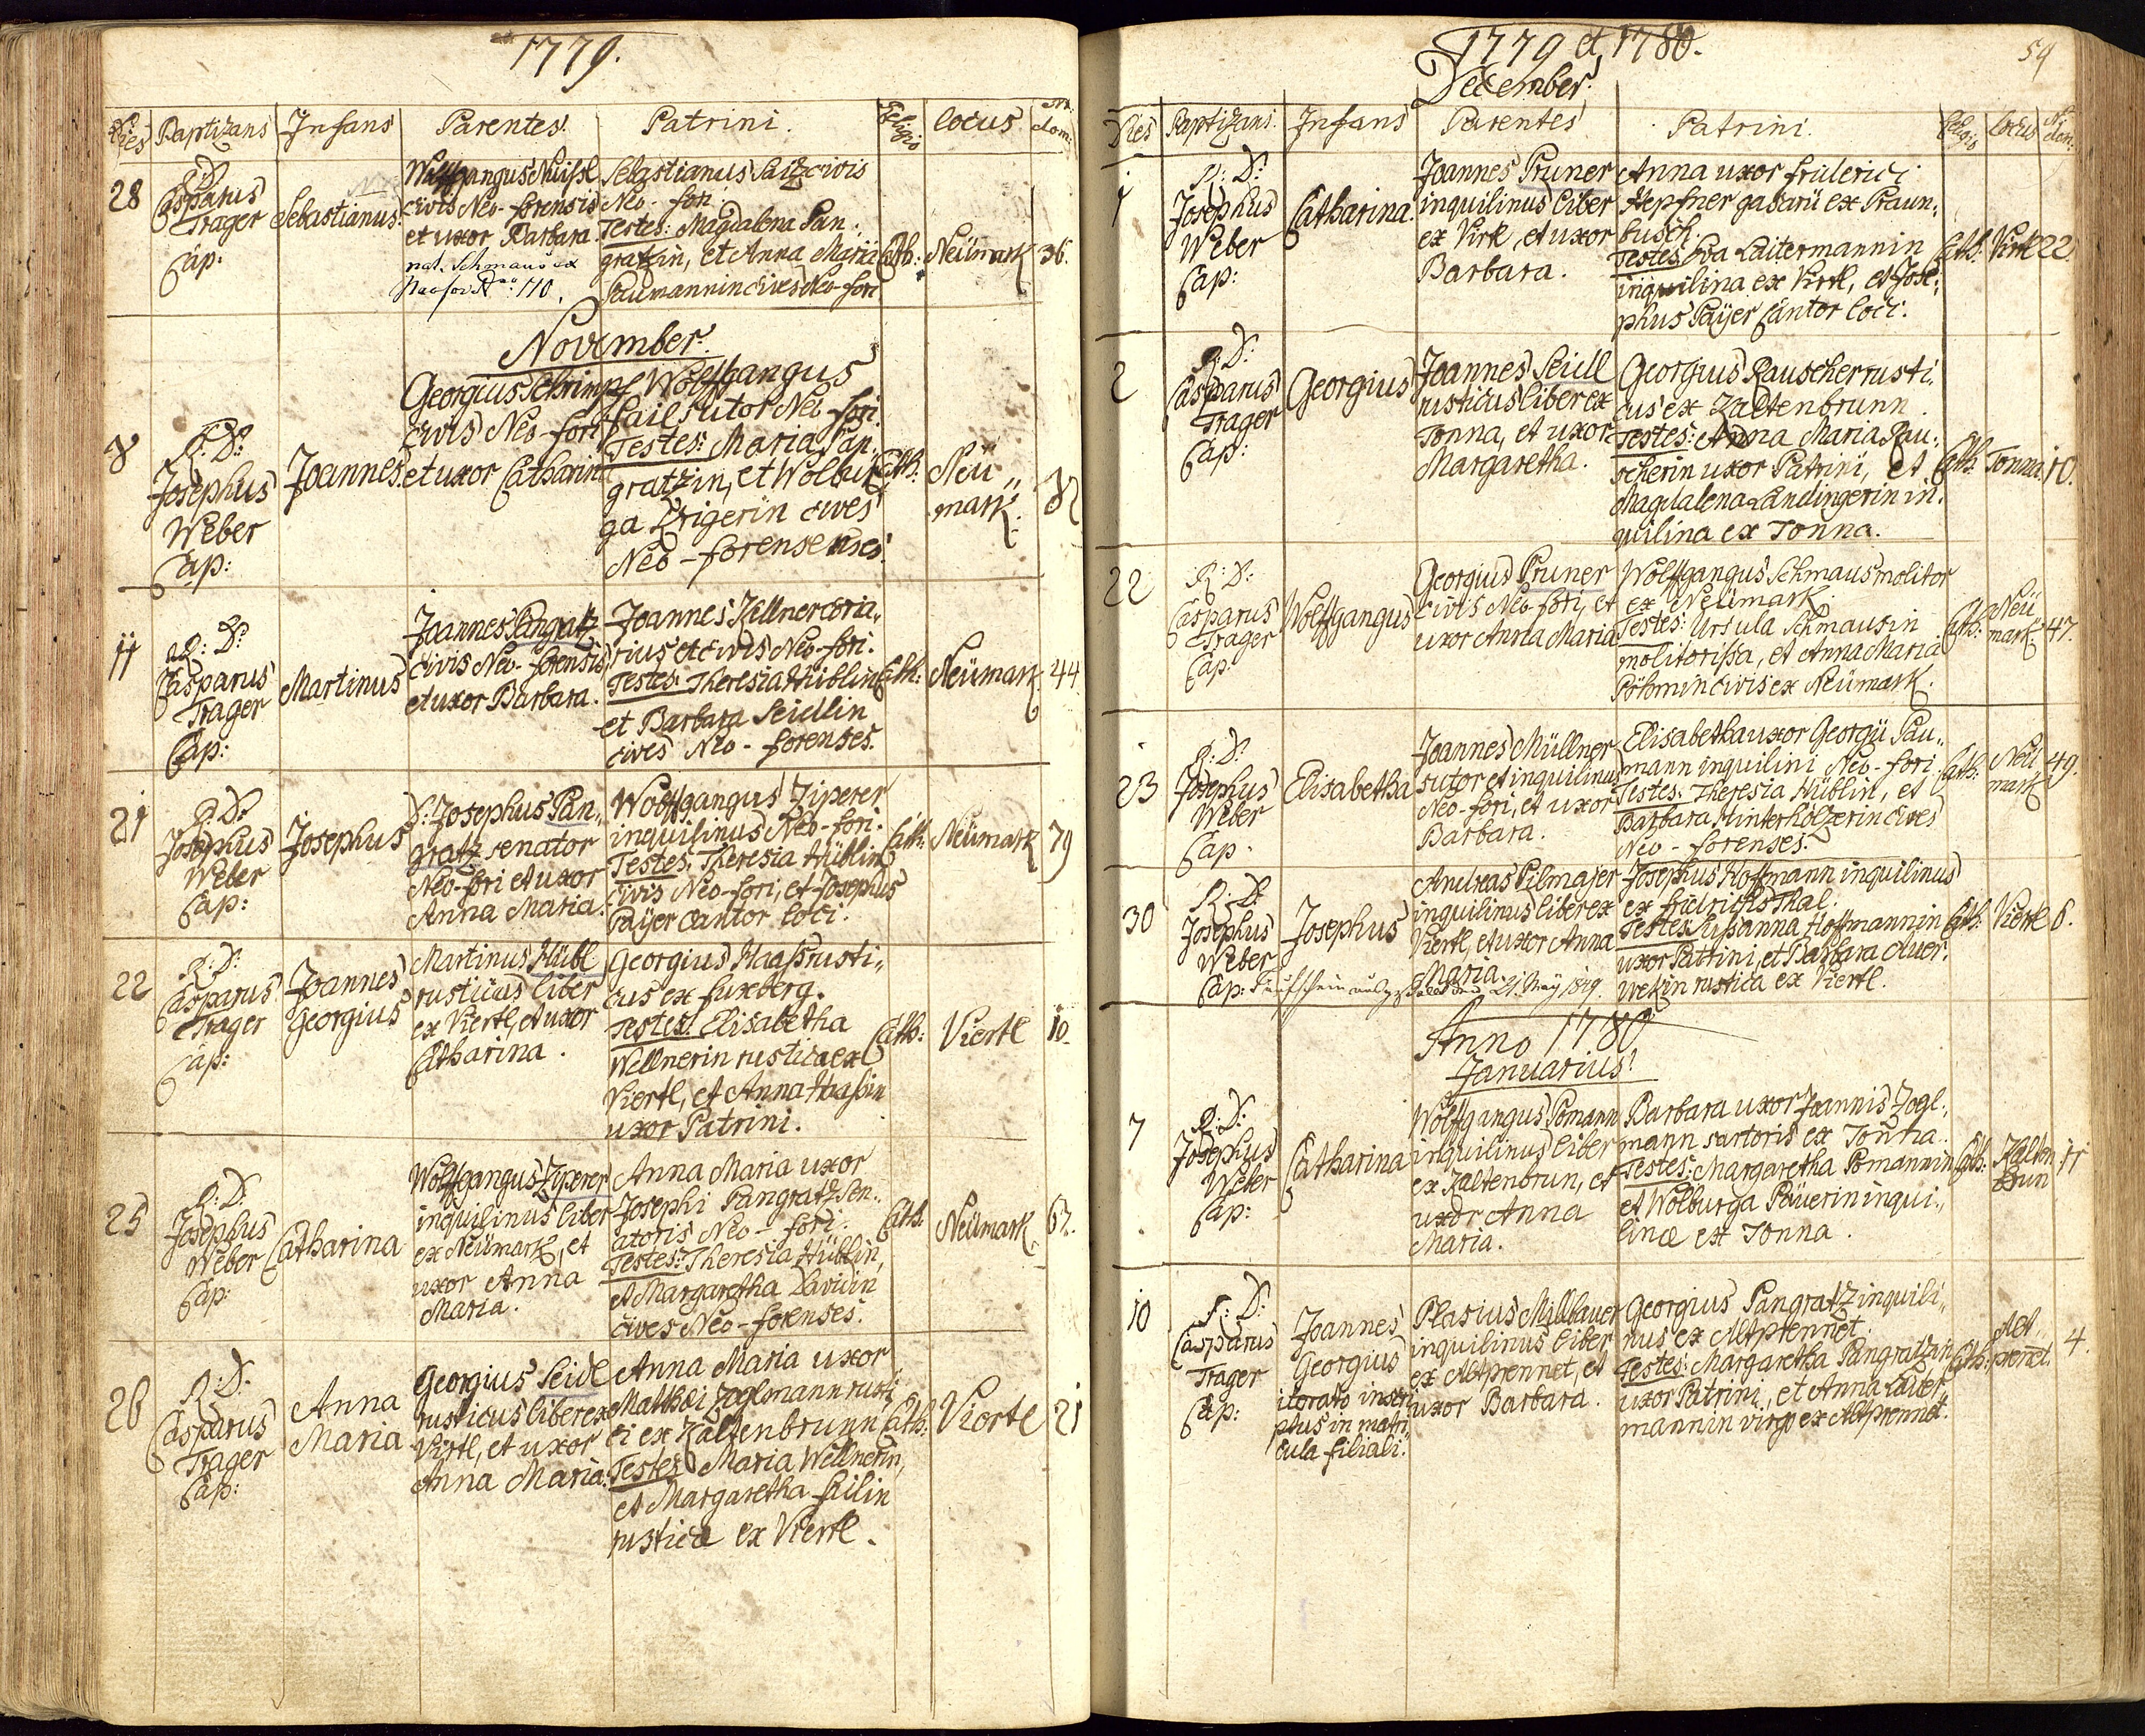 1779.
Dies Baptizans Infans Parentes. Patrini. Religio Locus Nr. dom:
28
R: D:
Casparus
Trager
Cap:
Sebastianus.
Wolffgangus Nuissl
civis Neo-forensis
et uxor Barbara.
nat. Schmaus ex
Neofor N: 110.
Sebastianus Saitz civis
Neo-fori.
Testes: Magdalena Pan-
gratzin, et Anna Maria
Paumannin cives Neo-fori
Cath: Neümark 36.
November.
8
R: D:
Josephus
Weber
Cap:
Joannes.
Georgius Schrimpf
civis Neo-fori
et uxor Catharina
Wolffgangus
Fail sutor Neo-fori.
Testes: Maria Pan-
gratzin, et Wolbur
ga Krigerin cives
Neo-forenses.
Cath: Neü„
mark.
11
R: D:
Casparus
Trager
Cap:
Martinus
Joannes Pangratz
civis Neo-forensis
et uxor Barbara.
Joannes Zellner coria„
rius et civis Neo-fori.
Testes: Theresia Hüblin
et Barbara Seidlin
cives Neo-forenses.
Cath: Neümark. 44
21
R: D:
Josephus
Weber
Cap:
Josephus
D: Josephus Pan„
gratz senator
Neo-fori et uxor
Anna Maria.
Wolffgangus Ziperer
inquilinus Neo-fori.
Testes: Theresia Hüblin
civis Neo-fori, et Josephus
Paÿer Cantor loci.
Cath: Neümark 79
22
R: D:
Casparus
Trager
Cap:
Joannes
Georgius
Martinus Hübl
rusticus liber
ex Viertl, et uxor
Catharina.
Georgius Haass rusti„
cus ex Fuxberg.
Testes: Elisabetha
Wellnerin rustica ex
Viertl, et Anna Haassin
uxor Patrini.
Cath: Viertl 10.
25
R: D:
Josephus
Weber
Cap:
Catharina
Wolffgangus Ziperer
inquilinus liber
ex Neümark, et
uxor Anna
Maria.
Anna Maria uxor
Josephi Pangratz Sen„
atoris Neo-fori.
Testes: Theresia Hüblin,
et Margaretha Davidin
cives Neo-forenses.
Cath: Neümark
26
R: D:
Casparus
Trager
Cap:
Anna
Maria
Georgius Seidl
rusticus liber ex
Viertl, et uxor
Anna Maria.
Anna Maria uxor
Mathæi Zoglmann rusti
ci ex Kaltenbrunn
Testes: Maria Wellnerin,
et Margaretha Failin
rusticæ ex Viertl.
Cath: Viertl 21
1779 et 1780.
59
December.
Dies Baptizans. Infans Parentes Patrini. Religio Locus Nr. dom:
1
R: D:
Josephus
Weber
Cap:
Catharina.
Joannes Pruner
inquilinus liber
ex Virtl, et uxor
Barbara.
Anna uxor friderici
Hepfner gasarii ex Praun„
busch.
Testes: Eva Laitermannin
inquilina ex Virtl, et Jose„
phus Paÿer Cantor loci.
Cath: Virtl 22.
2
R: D:
Casparus
Trager
Cap:
Georgius
Joannes Seidl
rusticus liber ex
Tonna, et uxor
Margaretha.
Georgius Rauscher rusti„
cus ex Kaltenbrunn.
Testes: Anna Maria Rau„
scherin uxor Patrini, et
Magdalena Landingerin in„
quilina ex Tonna.
Cath: Tonna. 10.
22
R: D:
Casparus
Trager
Cap:
Wolffgangus
Georgius Pruner
civis Neo-fori, et
uxor Anna Maria
Wolffgangus Schmaus molitor
ex Neümark.
Testes: Ursula Schmausin
molitorissa, et Anna Maria
Pöhmin civis ex Neümark.
Cath: Neü
mark 47.
23
R: D:
Josephus
Weber
Cap.
Elisabetha
Joannes Müllner
sutor et inquilinus
Neo-fori, et uxor
Barbara.
Elisabetha uxor Georgii Pau„
mann inquilini Neo-fori
Testes: Theresia Hüblin, et
Barbara Hinterholzerin cives
Neo-forenses.
Cath: Neü
mark 49.
30
R: D:
Josephus
Weber
Cap:
Josephus
Andreas Pilmajer
inquilinus liber ex
Viertl, et uxor Anna
Maria.
Taufschein 21. May 1819.
Josephus Hoffmann inquilinus
ex fridrichsthal.
Testes: Susanna Hoffmannin
uxor Patrini, et Barbara Auer„
wekin rustica ex Viertl.
Cath: Viertl 6.
Anno 1780
Januarius.
7
R: D:
Josephus
Weber
Cap:
Catharina
Wolffgangus Pomann
inquilinus liber
ex Kaltenbrun, et
uxor Anna
Maria.
Barbara uxor Joannis Zogl„
mann sartoris ex Tonna.
Testes: Margaretha Pomannin
et Wolburga Päuerin inqui„
linæ ex Tonna.
Cath: Kalten
Brun 11
10
R: D:
Casparus
Trager
Cap:
Joannes
Georgius
iterato inscri
ptus in matri
cula filiali.
Plasius Millbauer
inquilinus liber
ex Altprennet, et
uxor Barbara.
Georgius Pangratz inquili„
nus ex Altprennet.
Testes: Margaretha Pangratzin
uxor Patrini, et Anna Lauer„
mannin virgo ex Altprennet.
Cath: Alt
prennet. 4.